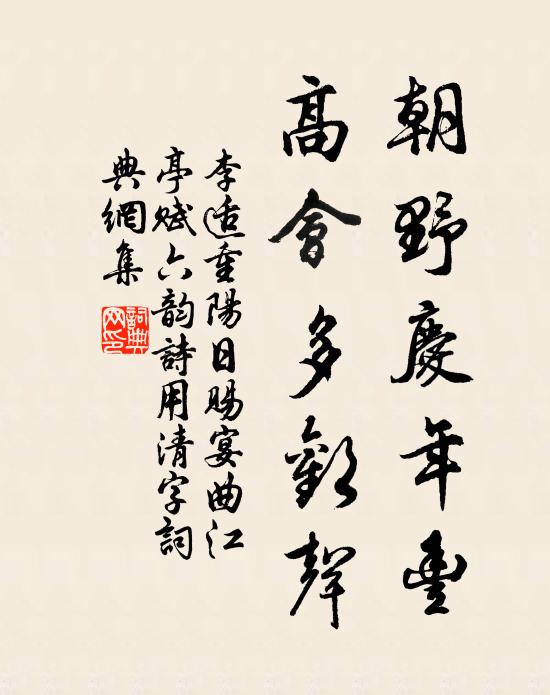 朝野慶年豐
高會多歡聲
李适重陽日賜宴曲江
亭賦六韵詩用清字詞
典網集
詞典
网印